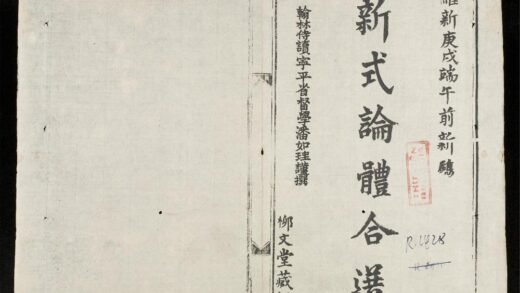 維新庚戌端午前新鐫
新式論體合選
翰林侍讀寧平省督學潘如珪謹撰
柳文堂藏
R.1828